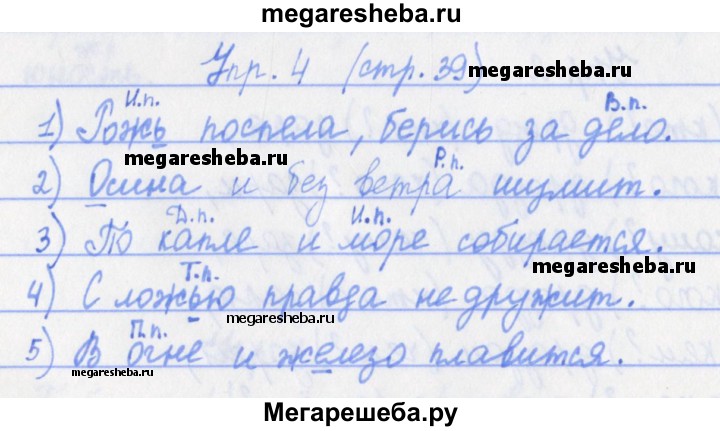 megaresheba.ru
Упр. 4 (стр. 39)
megaresheba.ru
И.п. В.п.
1) Рожь поспела, берись за дело.
megaresheba.ru
Р.п.
2) Осина и без ветра шумит.
Д.п. И.п.
3) По капле и море собирается.
megaresheba.ru
Т.п.
4) С ложью правда не дружит.
megaresheba.ru
П.п.
5) В огне и железо плавится.
megaresheba.ru
Мегарешеба.ру